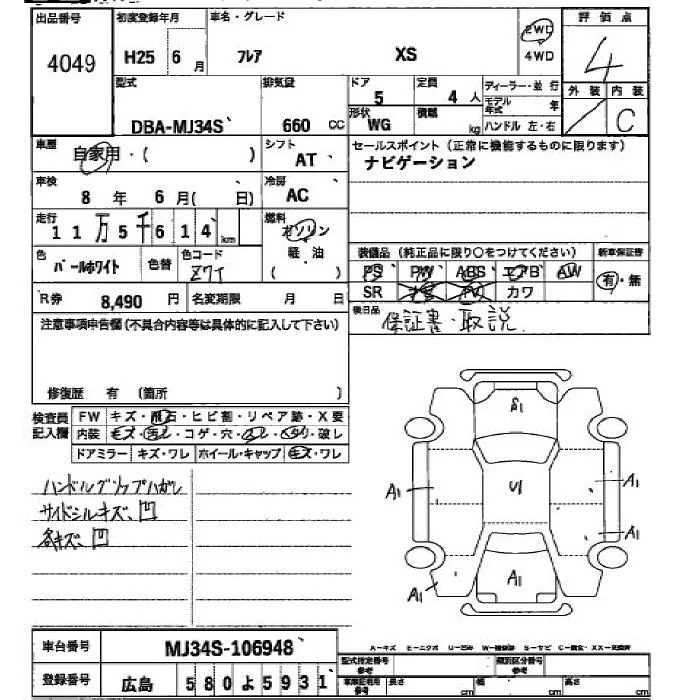 出品番号 初度登録年月 車名・グレード 評価点
4049 H25 6月 フレア XS 2WD 4WD 4
型式 排気量 ドア 定員 ディーラー・並行 外装 内装
DBA-MJ34S 660 CC 5 4人 モデル年式 年 C
形状 WG 積載 kg ハンドル 左・右
車歴 自家用・( ) シフト AT セールスポイント (正常に機能するものに限ります)
ナビゲーション
車検 8年 6月( 日) 冷房 AC
走行 11万5千614km 燃料 ガソリン
軽油
( )
色 パールホワイト 色替 色コード 装備品 (純正品に限り○をつけてください) 新車保証書
PS PW ABS エアB AW 有・無
SR カワ
R券 8,490円 名変期限 月 日
後日品 保証書・取説
注意事項申告欄(不具合内容等は具体的に記入して下さい)
修復歴 有 (箇所 )
検査員記入欄 FW キズ・飛石・ヒビ割・リペア跡・X要
内装 キズ・汚レ・コゲ・穴・破レ
ドアミラー キズ・ワレ ホイール・キャップ キズ・ワレ
ハンドルグリップハガレ
サイドシルキズ、凹
各キズ、凹
A1
U1
A1
A1
A1
A1
A1
A-キズ U-凹み S-サビ
車台番号 MJ34S-106948 型式指定番号 参考 類別区分番号 参考
登録番号 広島 580 よ 5931 車庫証明用参考 長さ cm 幅 cm 高さ cm